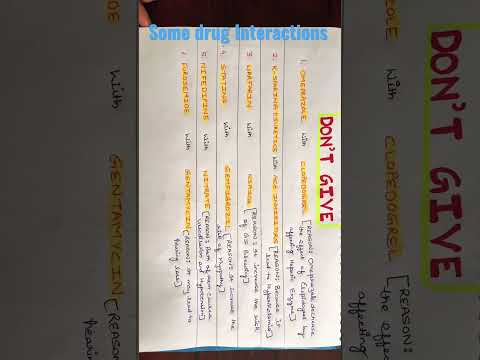 Some drug Interactions
DON'T GIVE
1. OMEPRAZOLE with CLOPEDOGREL [REASON: Omeprazole decrease
the effect of Clopidogrel by
affecting hepatic Enzyme]
2. K-SPARING DIURETICS with ACE INHIBITORS [REASON: Because It
lead to Hyperkalemia]
3. WARFARIN with NSAIDs [REASON: It increase the risk
of GI Bleeding]
4. STATINS with GEMFIBROZIL [REASON: It increase the
risk of Myopathy]
5. NIFEDIPINE with NITRATE [REASON: Both of them cause
vasodilation and
6. FUROSEMIDE with GENTAMYCIN [REASON: It may lead to
hearing loss]
DON'T GIVE
OLE with CLOPEDOGREL [REASON:
the effe
affecting
with GENTAMYCIN [REASON
hearing